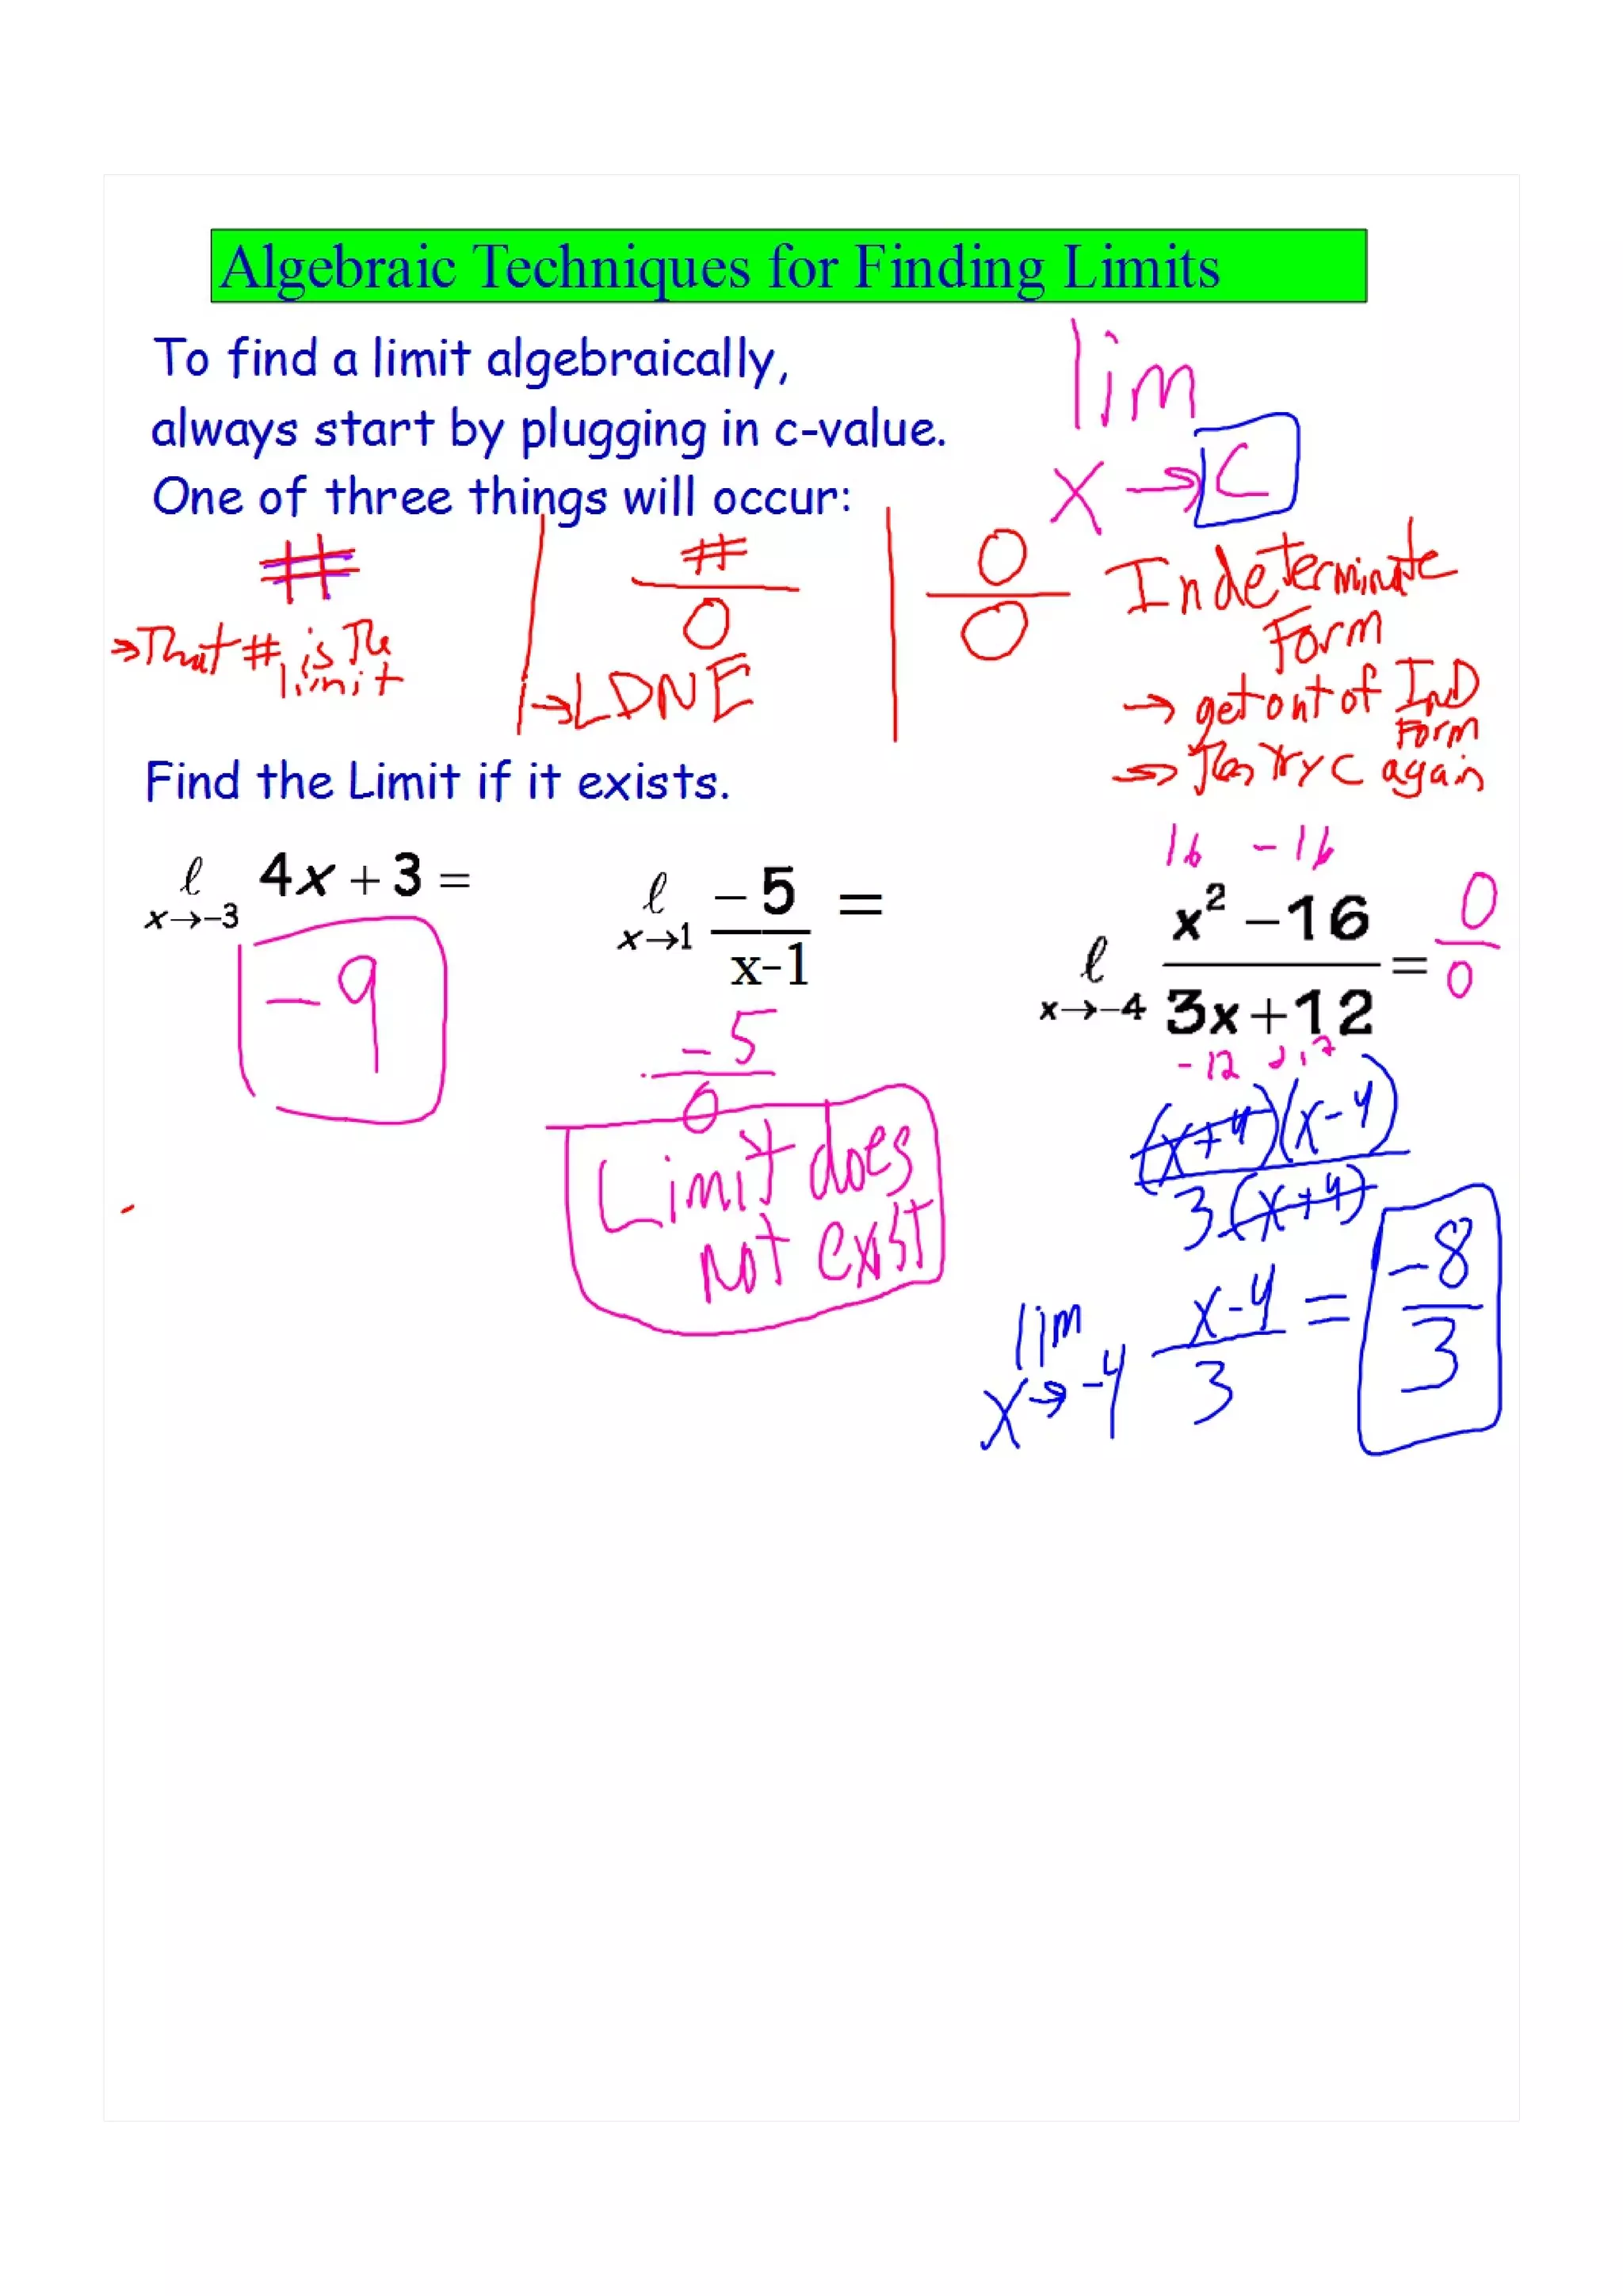 Algebraic Techniques for Finding Limits
To find a limit algebraically,
always start by plugging in c-value.
One of three things will occur:
lim
x → C
#
→ That # is The
limit
#
0
→ LDNE
0
0
Indeterminate
Form
→ get out of IND
Form
→ Then try C again
Find the Limit if it exists.
ℓ 4x + 3 =
x→-3
-9
ℓ -5 =
x→1 x-1
-5
0
Limit does
not exist
16 -16
x² -16
ℓ = 0
0
x→-4 3x+12
-12
(x+4)(x-4)
3(x+4)
lim x-4 = -8
x→-4 3 3